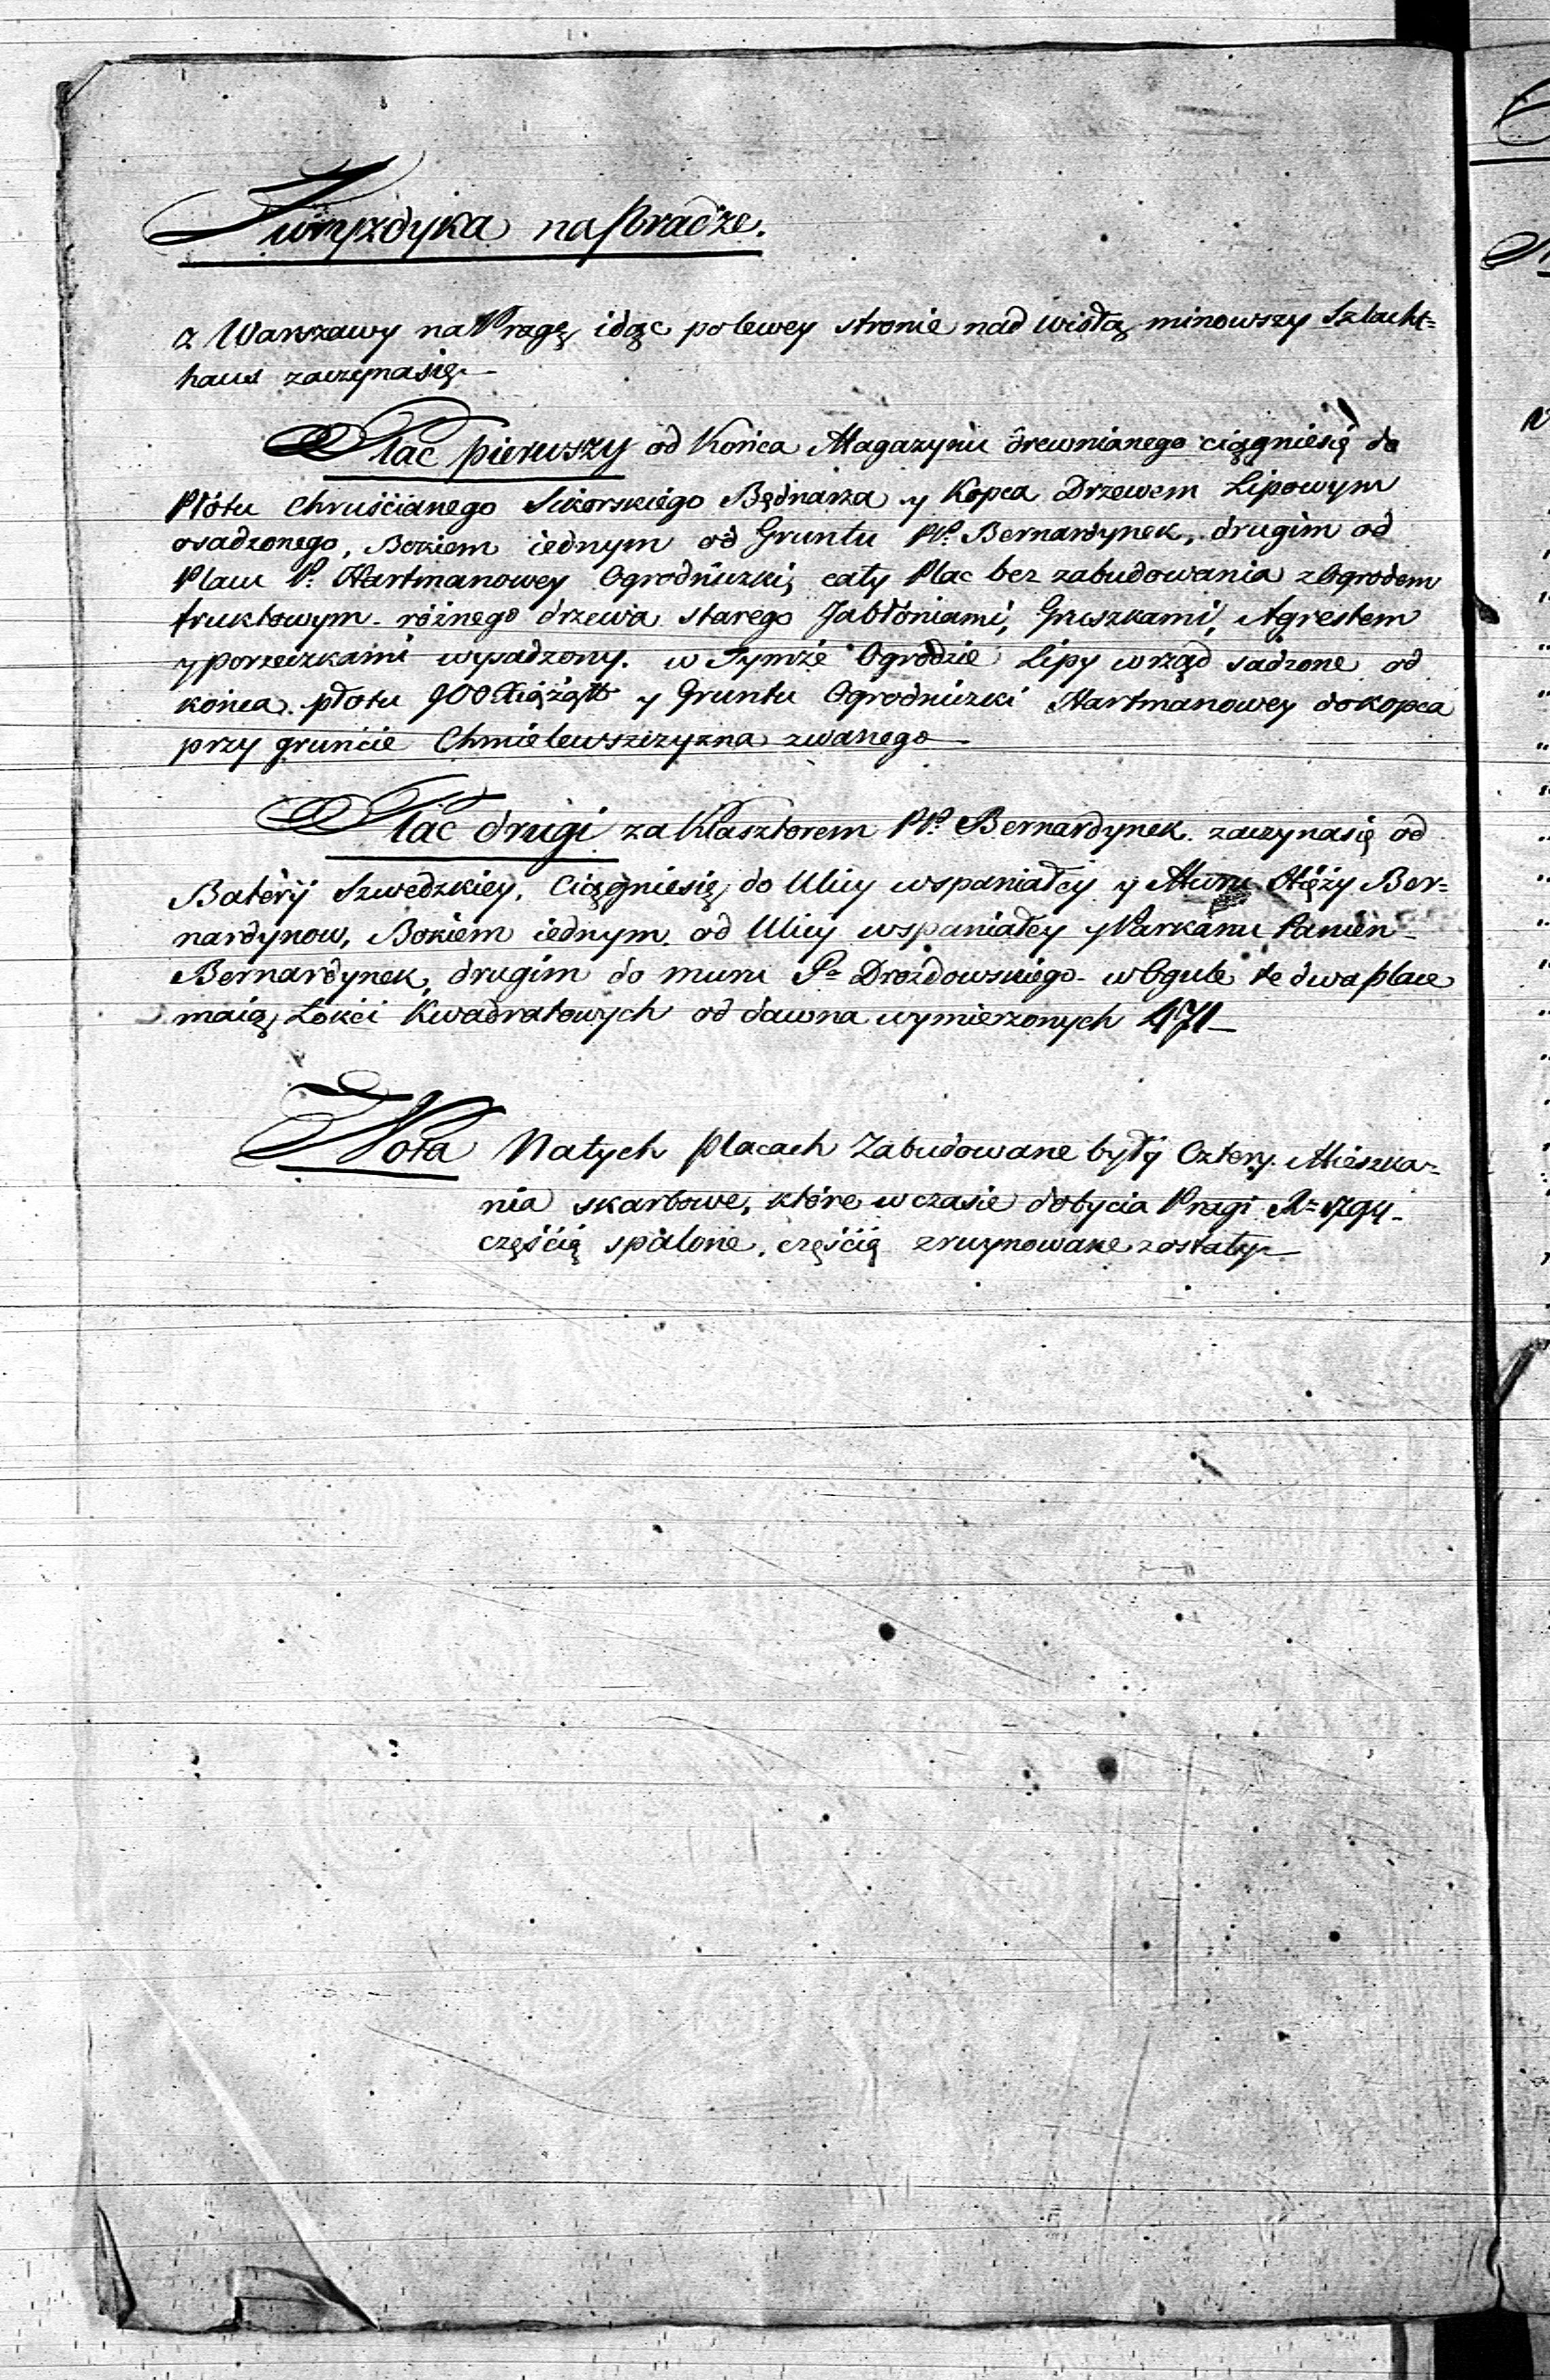 Jurryzdyka na Pradze.
z Warszawy na Pragę idąc po lewey stronie nad Wisłą minowszy Szlacht=
haus zaczyna się.
Plac pierwszy od Końca Magazynu drewnianego ciągnie się do
Płótu Chruścianego Sikorskiego Bednarza y Kopca Drzewem Lipowym
osadzonego, Bokiem iednym od Gruntu PP. Bernardynek, drugim od
Placu P. Hartmanowey Ogrodniczki, cały Plac bez zabudowania z Ogrodem
fruktowym różnego drzewa starego Jabłoniami, Gruszkami, Agrestem
y porzeczkami wysadzony. w Tymże Ogrodzie Lipy w rząd sadzone od
końca płotu Xiążąt y Gruntu Ogrodniczki Hartmanowey do kopca
przy gruncie Chmielewszczyzna zwanego
Plac drugi za Klasztorem PP. Bernardynek zaczyna się od
Bateryi Szwedzkiey, Ciągnie się do Ulicy wspaniałey y Muru Xięży Ber=
nardynow, Bokiem iednym od Ulicy wspaniałey y Parkanu Panien
Bernardynek, drugim do muru Pa Drozdowskiego w Ogule te dwa place
maią Łokci Kwadratowych od dawna wymierzonych
Nota Na tych placach Zabudowane były Cztery Mieszka=
nia skarbowe, które w czasie dobycia Pragi Ao 1794
częścią spalone, częścią zruynowane zostały